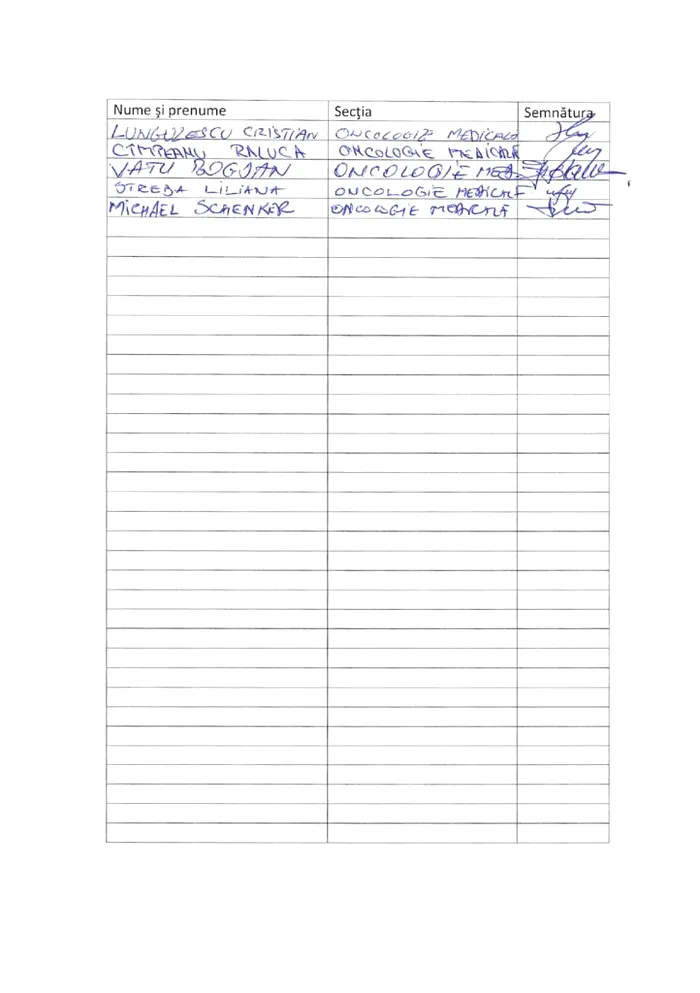 Nume și prenume Secția Semnătura
LUNGULESCU CRISTIAN ONCOLOGIE MEDICALĂ
CÎMPEANU RALUCA ONCOLOGIE MEDICALĂ
VATU BOGDAN ONCOLOGIE MED.
STREBA LILIANA ONCOLOGIE MEDICALĂ
MICHAEL SCHENKER ONCOLOGIE MEDICALĂ